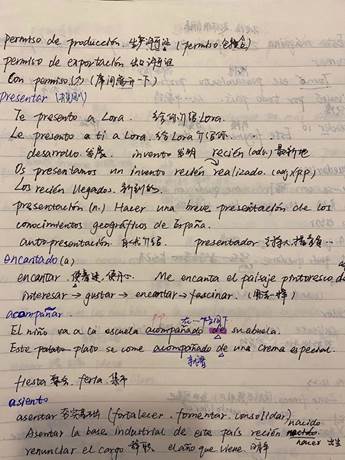 permiso de producción 生产许可证 (permiso 包括的)
permiso de exportación 出口许可证
Con permiso.
Presentar (规则)
Te presento a Lora. 给你介绍Lora.
Le presento a ti a Lora. 给Lora介绍你.
desarrollo 发展. invento 发明 recién (adv.) 最新地
Os presentamos un invento recién realizado. (adj/p.p)
Los recién llegados. 新到的.
presentación (n.) Hacer una breve presentación de los
conocimientos geográficos de España.
autopresentación 自我介绍. presentador 主持人
encantado (a)
encantar. Me encanta el paisaje pintoresco
interesar → gustar → encantar → fascinar.
acompañar
El niño va a la escuela acompañado de su abuela.
Este plato se come acompañado de una crema especial.
fiesta 聚会. feria 集市
asiento
asentar (fortalecer. fomentar. consolidar)
Asentar la base industrial de este país recién nacido.
renunciar el cargo 辞职. el año que viene nacer 出生